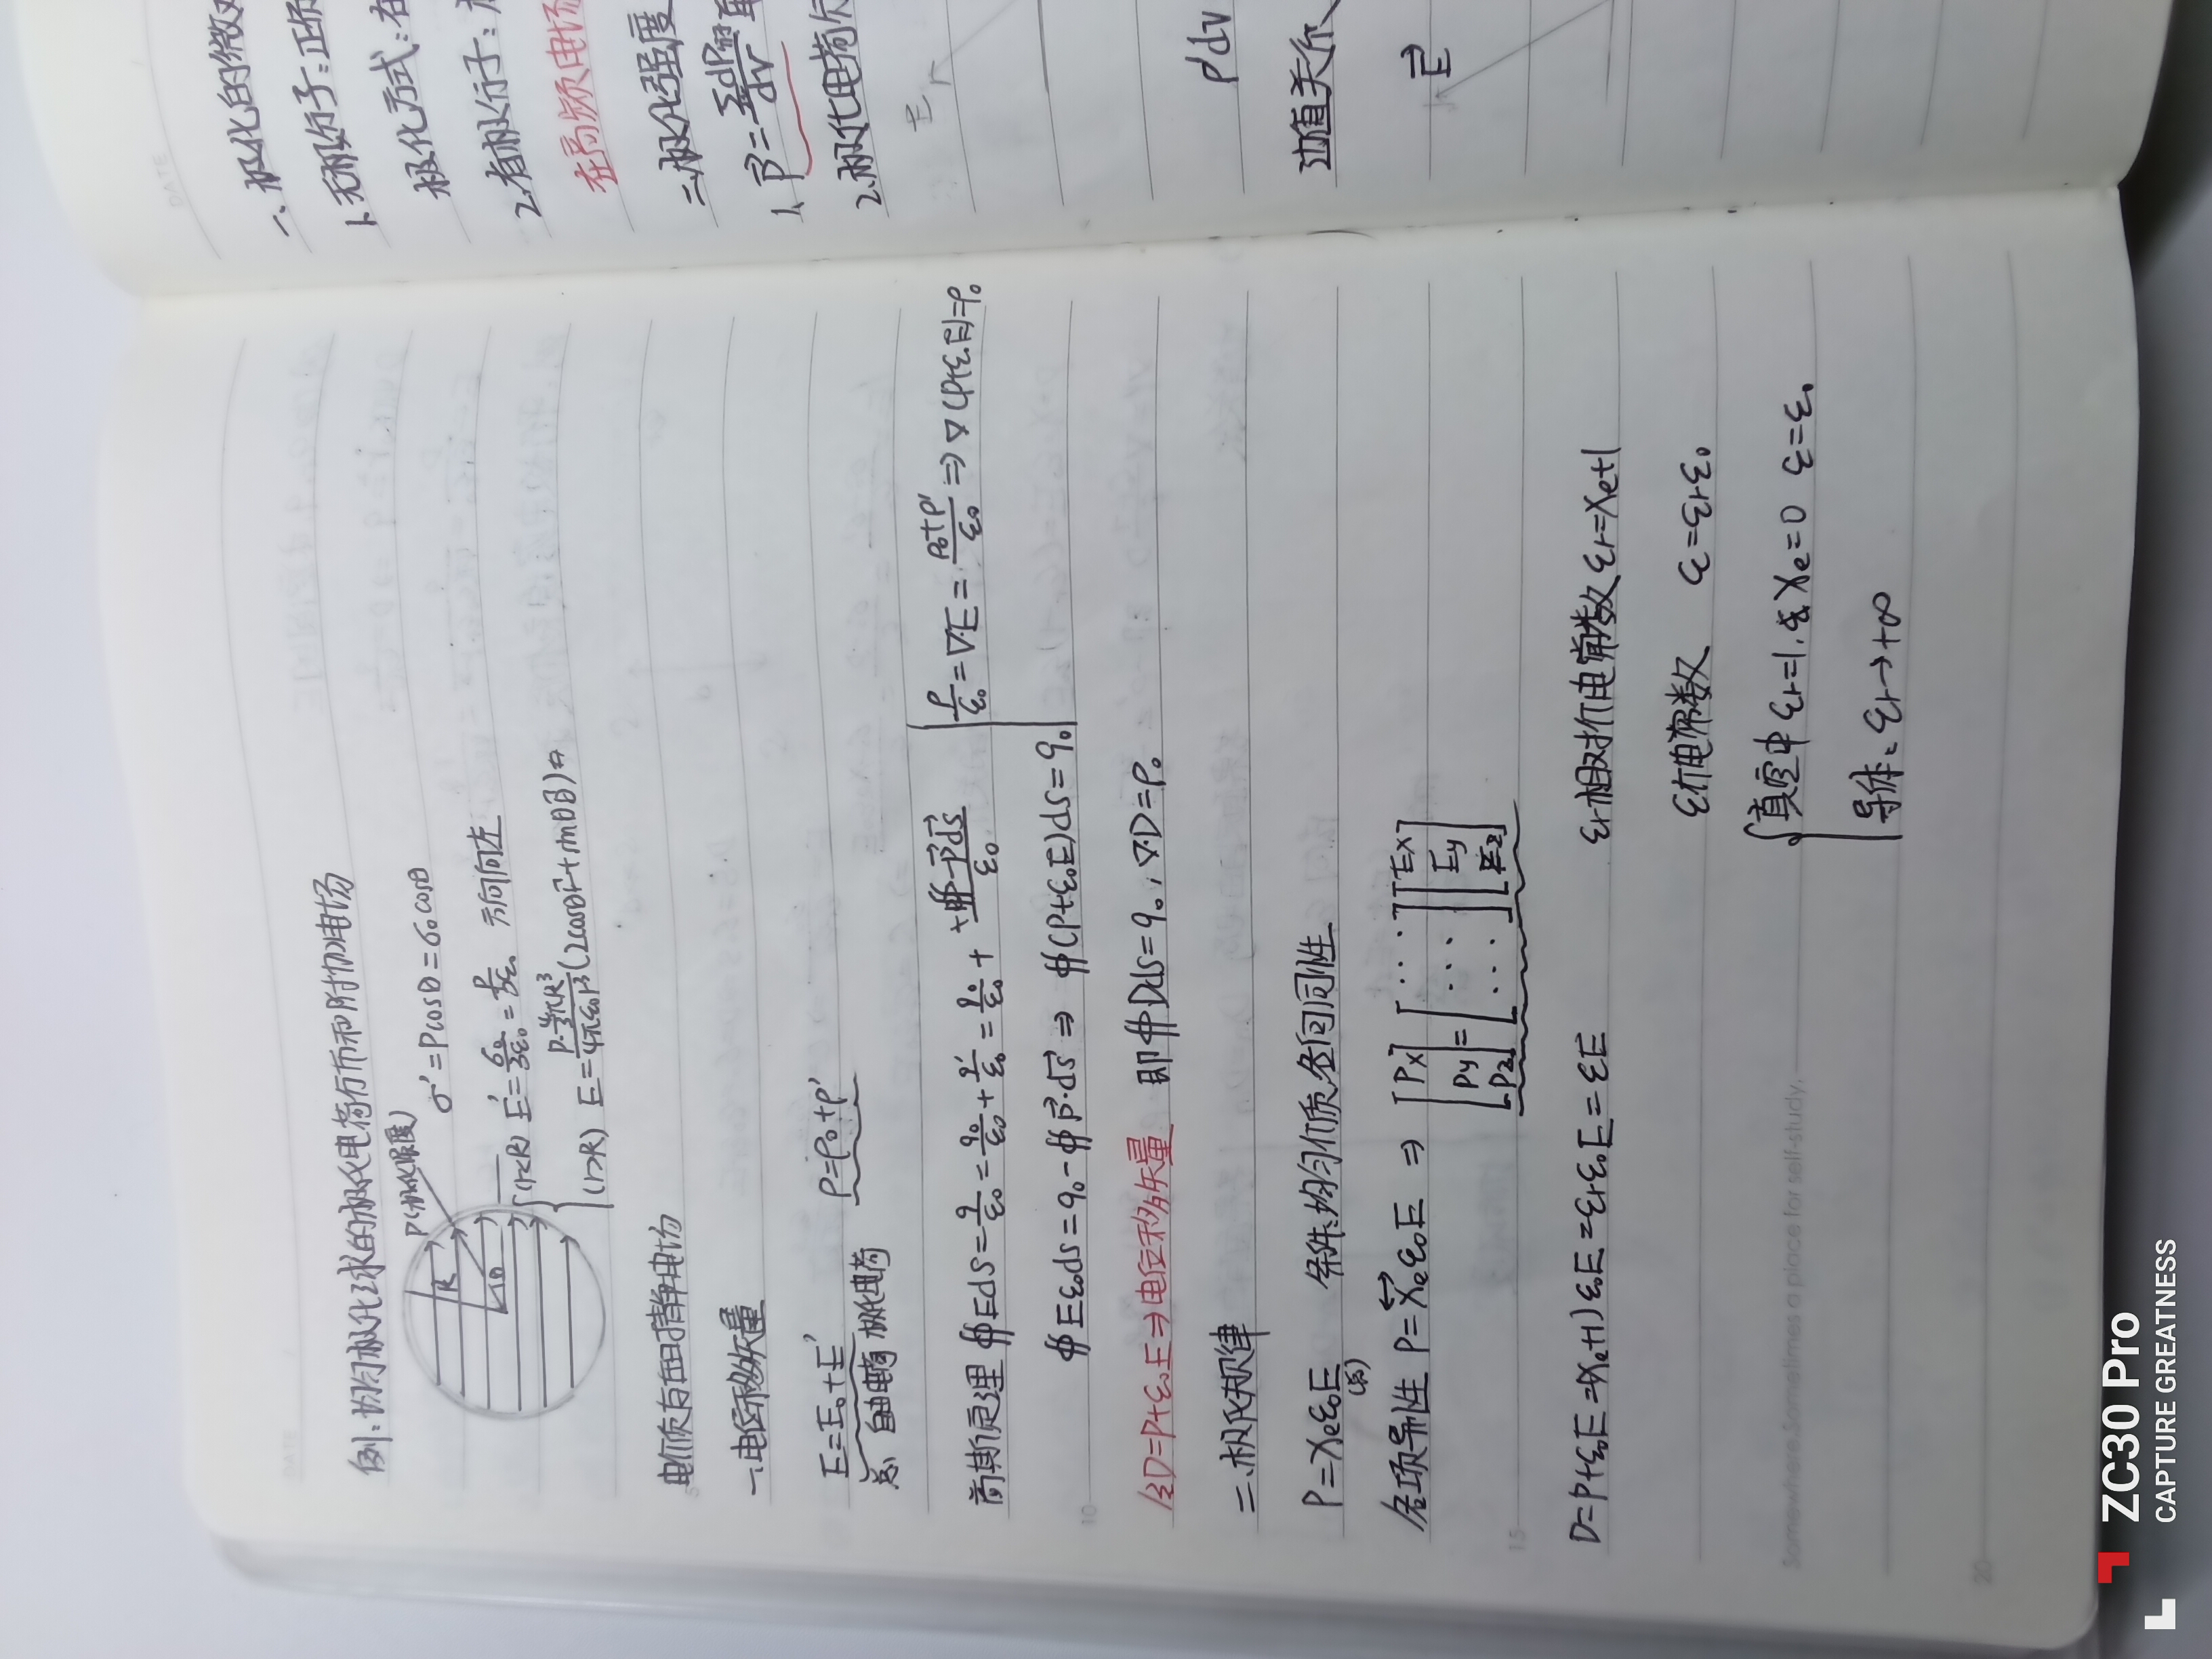 DATE
例:均匀极化球的极化电荷分布和附加电场
P(极化强度)
R
θ
σ'=Pcosθ=σ₀cosθ
(r<R) E'=σ₀/3ε₀=P/3ε₀ 方向向左
(r>R) E=P·4/3πR³/4πε₀r³(2cosθr̂+sinθθ̂)
电介质存在时静电场
5
一.电位移矢量
E=E₀+E' ρ=ρ₀+ρ'
总 自由电荷 极化电荷
高斯定理 ∯Eds=q/ε₀=q₀/ε₀+q'/ε₀=q₀/ε₀+∯-P⃗ds⃗/ε₀
ρ/ε₀=∇E=ρ₀+ρ'/ε₀⇒∇(P+ε₀E)=ρ₀
∯Eε₀ds=q₀-∯P⃗·ds⃗⇒∯(P+ε₀E)ds=q₀
10
记D=P+ε₀E⇒电位移矢量 即∯Dds=q₀,∇D=ρ₀
二.极化规律
P=χeε₀E 条件:均匀介质,各向同性
(总)
各项异性 P=χ⃡eε₀E ⇒ [Px Py Pz]=[... ... ...][Ex Ey Ez]
15
D=P+ε₀E=(χe+1)ε₀E=εrε₀E=εE εr相对介电常数εr=χe+1
ε介电常数 ε=εrε₀
真空中εr=1, χe=0 ε=ε₀
Somewhere,Sometimes a place for self-study.
导体:εr→+∞
20
DATE
一、极化的微观
1.无极分子:正
极化方式:在
2.有极分子:
在高频电场
二.极化强度
1. P⃗=∑dP/dv
2.极化电荷
E
r
ρdv
边值关系
E⃗
ZC30 Pro
CAPTURE GREATNESS